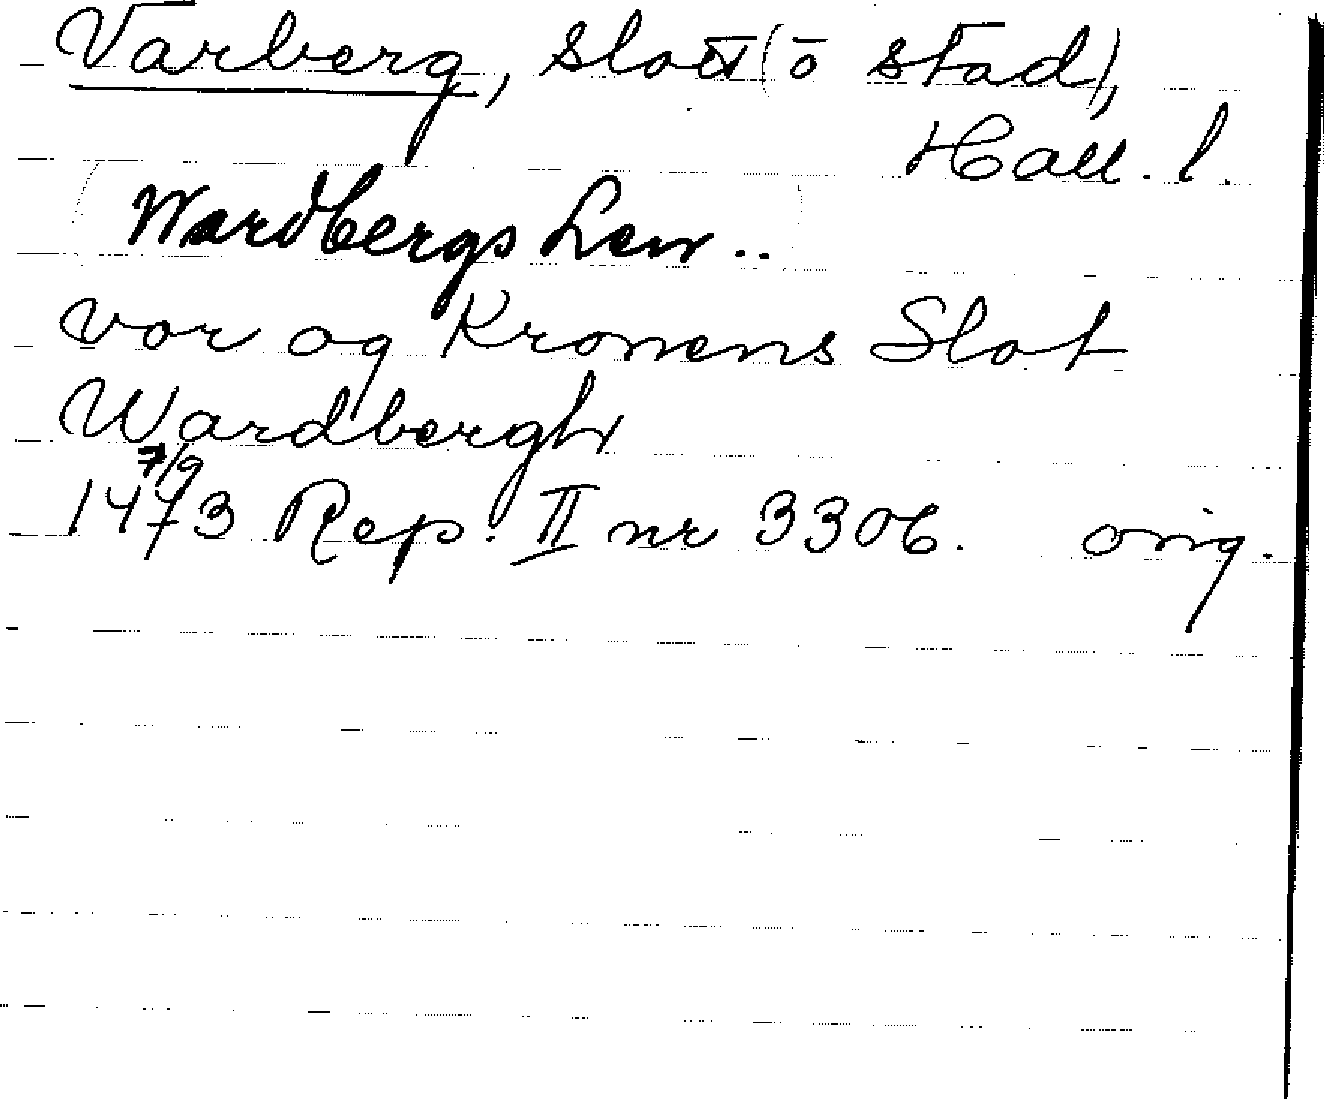 Varberg, slott (o stad),
Hall. l.
Wardbergs Len ..
vor og Kronens Slot
Wardbergh
7/9
1473 Rep. II nr 3306. orig.